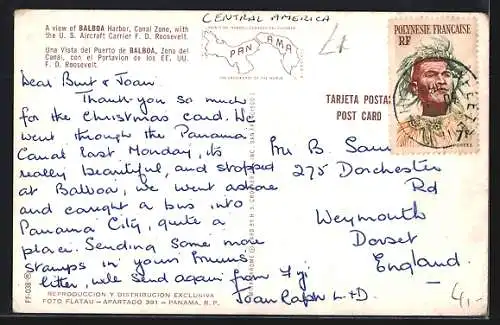 CENTRAL AMERICA
A view of BALBOA Harbor, Canal Zone, with
the U. S. Aircraft Carrier F. D. Roosevelt.
Una Vista del Puerto de BALBOA, Zona del
Canal, con el Portavion de los EE. UU.
F. D. Roosevelt.
PAN AMA
POLYNESIE FRANÇAISE
RF
7F
POSTES
TARJETA POSTAL
POST CARD
Dear Burt & Joan.
Thank you so much
for the Christmas card. We
went through the Panama
Canal last Monday, its
really beautiful, and stopped
at Balboa, we went ashore
and caught a bus into
Panama City, quite a
place. Sending some more
stamps in your
litter, we'll send again from Fiji
Joan Ralph L+D
Mr B. Sam
275 Dorchester
Rd
Weymouth
Dorset
England.
FF-038
REPRODUCCION Y DISTRIBUCION EXCLUSIVA
FOTO FLATAU — APARTADO 391 — PANAMA, R. P.
4,-